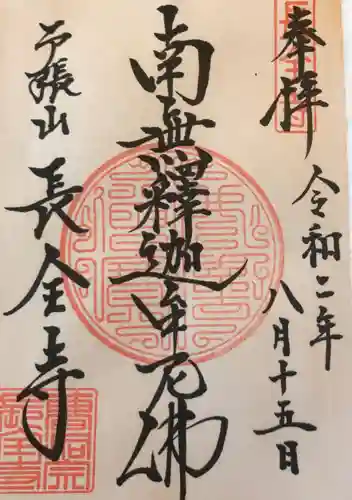 奉拝
令和二年
八月十五日
南無釋迦牟尼佛
長全寺